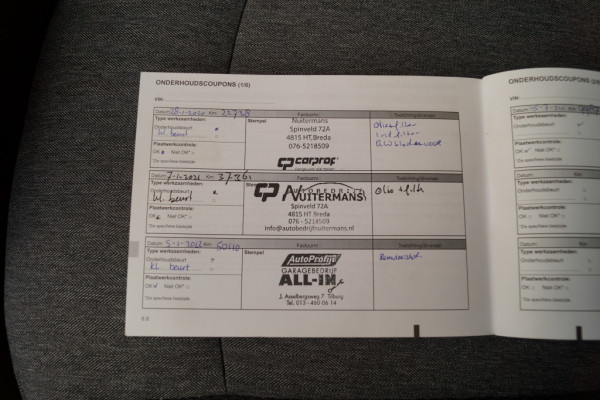 ONDERHOUDSCOUPONS (1/6)
VIN
Datum 28-1-2020 Km
Factuurnr.
Toelichting/diversen
Type werkzaamheden:
Onderhoudsbeurt
kl. beurt
Plaatwerkcontrole:
OK Niet OK*
*Zie specifieke bladzijde
Stempel
Nuitermans
Spinveld 72A
4815 HT, Breda
076-5218509
carprof
Oliefilter
Datum 7-1-2021 Km
Factuurnr.
Toelichting/diversen
Type werkzaamheden:
Onderhoudsbeurt
kl. beurt
Plaatwerkcontrole:
OK Niet OK*
*Zie specifieke bladzijde
Stempel
AUTOBEDRIJF
NUITERMANS
Spinveld 72A
4815 HT Breda
076 - 5218509
info@autobedrijfnuitermans.nl
Olie + filt
Datum 5-1-2022 Km 50110
Factuurnr.
Toelichting/diversen
Type werkzaamheden:
Onderhoudsbeurt
kl. beurt
Plaatwerkcontrole:
OK Niet OK*
*Zie specifieke bladzijde
Stempel
AutoProfijt
GARAGEBEDRIJF
ALL-IN
J. Asselbergsweg 7 Tilburg
Tel. 013 - 460 06 14
6.6
ONDERHOUDSCOUPONS
VIN
Datum
Type werkzaamheden:
Onderhoudsbeurt
Plaatwerkcontrole:
OK Niet OK*
*Zie specifieke bladzijde
Datum
Km
Type werkzaamheden:
Onderhoudsbeurt
Plaatwerkcontrole:
OK Niet OK*
*Zie specifieke bladzijde
Datum
Km
Type werkzaamheden:
Onderhoudsbeurt
Plaatwerkcontrole:
OK Niet OK*
*Zie specifieke bladzijde